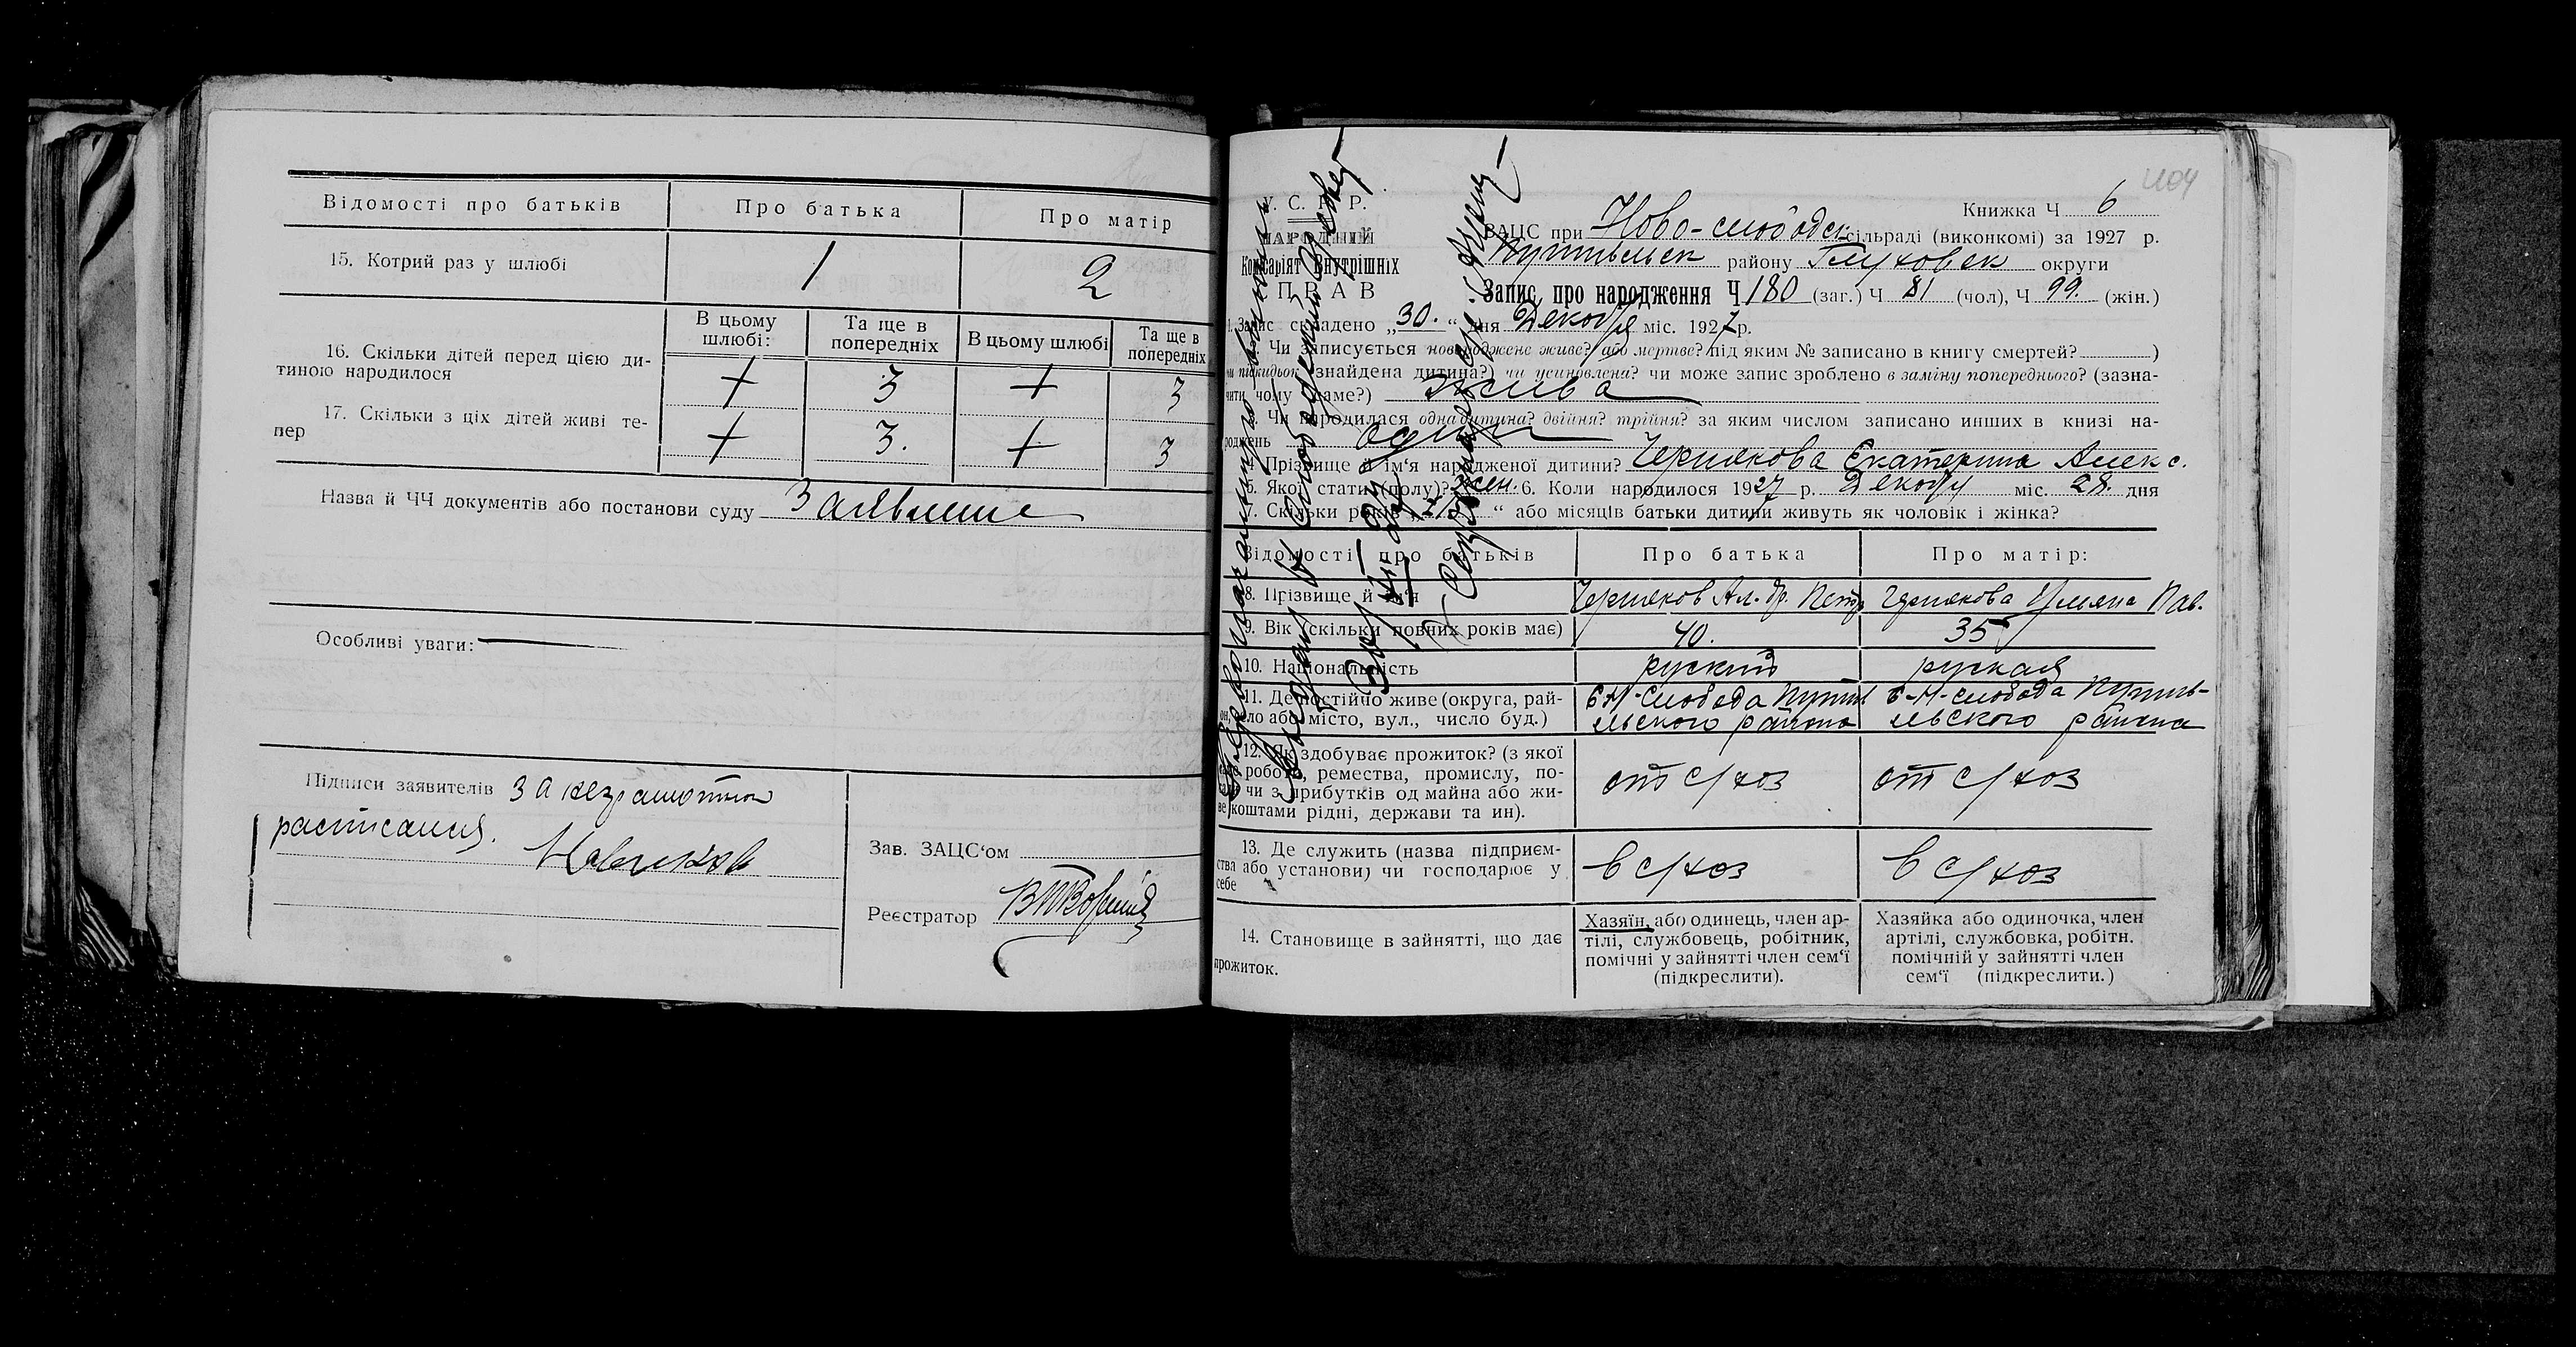 Відомості про батьків
Про батька
Про матір
15. Котрий раз у шлюбі
1
2
В цьому шлюбі:
Та ще в попередніх
В цьому шлюбі
Та ще в попередніх
16. Скільки дітей перед цією ди-
тиною народилося
+ 3 + 3
17. Скільки з ціх дітей живі те-
пер
+ 3. + 3
Назва й ЧЧ документів або постанови суду Заявление
Особливі уваги:
Підписи заявителів за неграмотн
расписался.
Зав. ЗАЦС'ом
Реєстратор
404
Книжка Ч 6
У. С. Р. Р.
НАРОДНИЙ
Комісаріят Внутрішніх
ПРАВ
ЗАЦС при Ново-слободск сільраді (виконкомі) за 1927 р.
Путивльск району Глуховск округи
Запис про народження Ч 180 (заг.) Ч 81 (чол), Ч 99. (жін.)
1. Запис складено „30.“ дня Декабря міс. 1927 р.
Чи записується новороджене живе? або мертве? під яким № записано в книгу смертей? )
чи підкидьок (знайдена дитина?) чи усиновлена? чи може запис зроблено в заміну попереднього? (зазна-
чити чому саме?) жива
Чи народилася одна дитина? двійня? трійня? за яким числом записано инших в книзі на-
роджень одна
4. Прізвище й ім'я народженої дитини? Чернякова Екатерина Алекс.
5. Якої статі (полу)? жен. 6. Коли народилося 1927 р. Декабр міс. 28. дня
7. Скільки років „ “ або місяців батьки дитини живуть як чоловік і жінка?
Відомості про батьків
Про батька
Про матір:
8. Прізвище й ім'я
Черняков Ал-др. Петр
Чернякова Ульяна Пав.
9. Вік (скільки повних років має)
40.
35
10. Національність
руский
руская
11. Де постійно живе (округа, рай-
он, село або місто, вул., число буд.)
с Н-слобода Путив
льского района
с-Н-слобода Путив-
льского района
12. Як здобуває прожиток? (з якої
роботи, ремества, промислу, по-
чи з прибутків од майна або жи-
ве коштами рідні, держави та ин).
от с/хоз
от с/хоз
13. Де служить (назва підприєм-
ства або установи) чи господарює у
себе
в с/хоз
в с/хоз
14. Становище в зайнятті, що дає
прожиток.
Хазяїн, або одинець, член ар-
тілі, службовець, робітник,
помічні у зайнятті член сем'ї
(підкреслити).
Хазяйка або одиночка, член
артілі, службовка, робітн.
помічній у зайнятті член
сем'ї (підкреслити.)